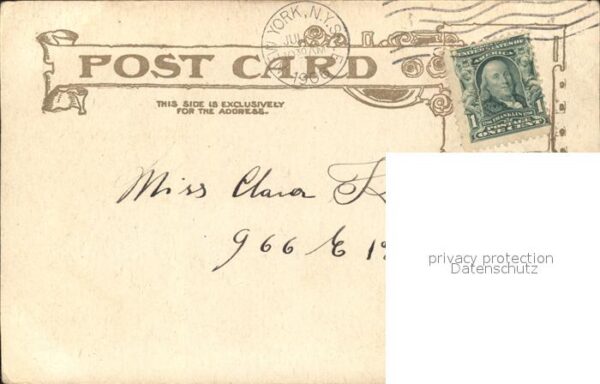 NEW YORK, N.Y.
JUL
1906
POST CARD
THIS SIDE IS EXCLUSIVELY
FOR THE ADDRESS.
UNITED STATES OF
AMERICA
FRANKLIN
1 POSTAGE 1
ONE CENT
Miss Clara
966 E 19
privacy protection
Datenschutz